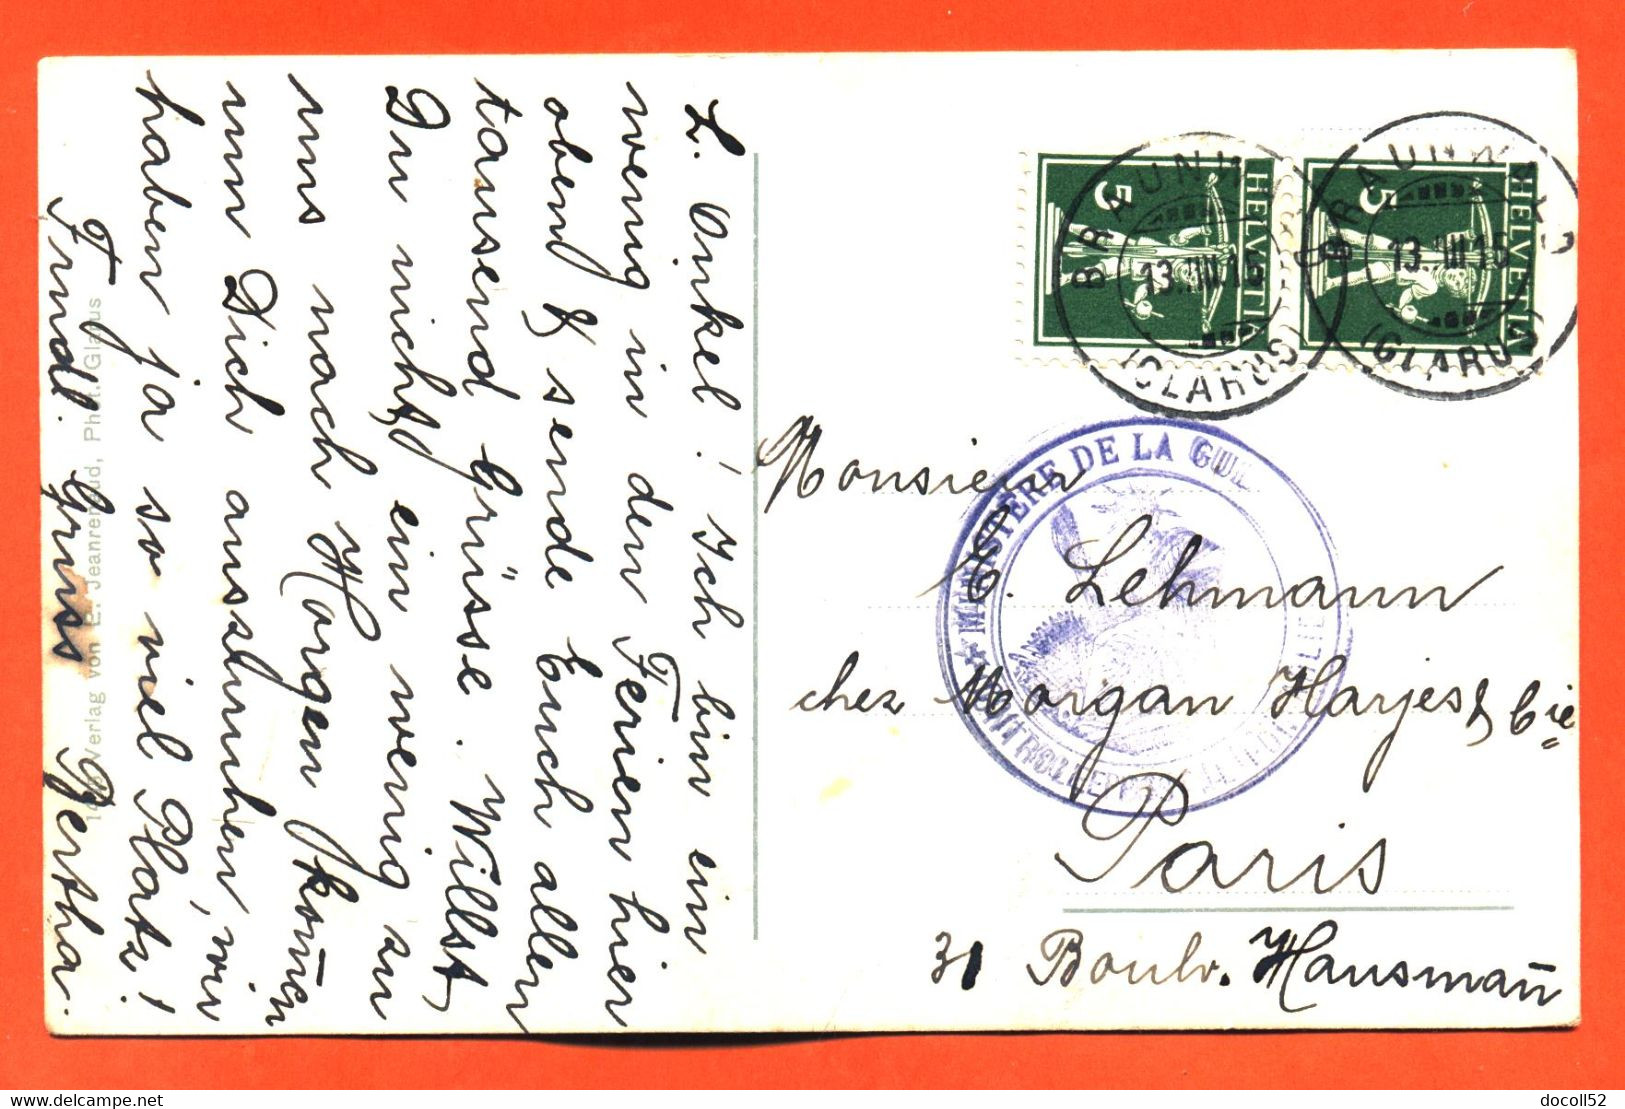 L. Onkel! Ich bin ein
wenig in den Ferien hier
oben & sende Euch allen
tausend Grüsse. Willst
Du nicht ein wenig zu
uns nach Horgen kom̄en
um Dich auszuruhen, wir
haben ja so viel Platz!
Frndl. Gruss Bertha.
Verlag von E. Jeanrenaud, Phot. Glarus
HELVETIA
5
HELVETIA
5
BRAUNWALD
13.VIII.15
(GLARUS)
BRAUNWALD
13.VIII.15
(GLARUS)
MINISTÈRE DE LA GUE
Monsieur
E. Lehmann
chez Morgan Harjes & Cie
Paris
31 Boulv. Hausman̄
delcampe.net
docoll52